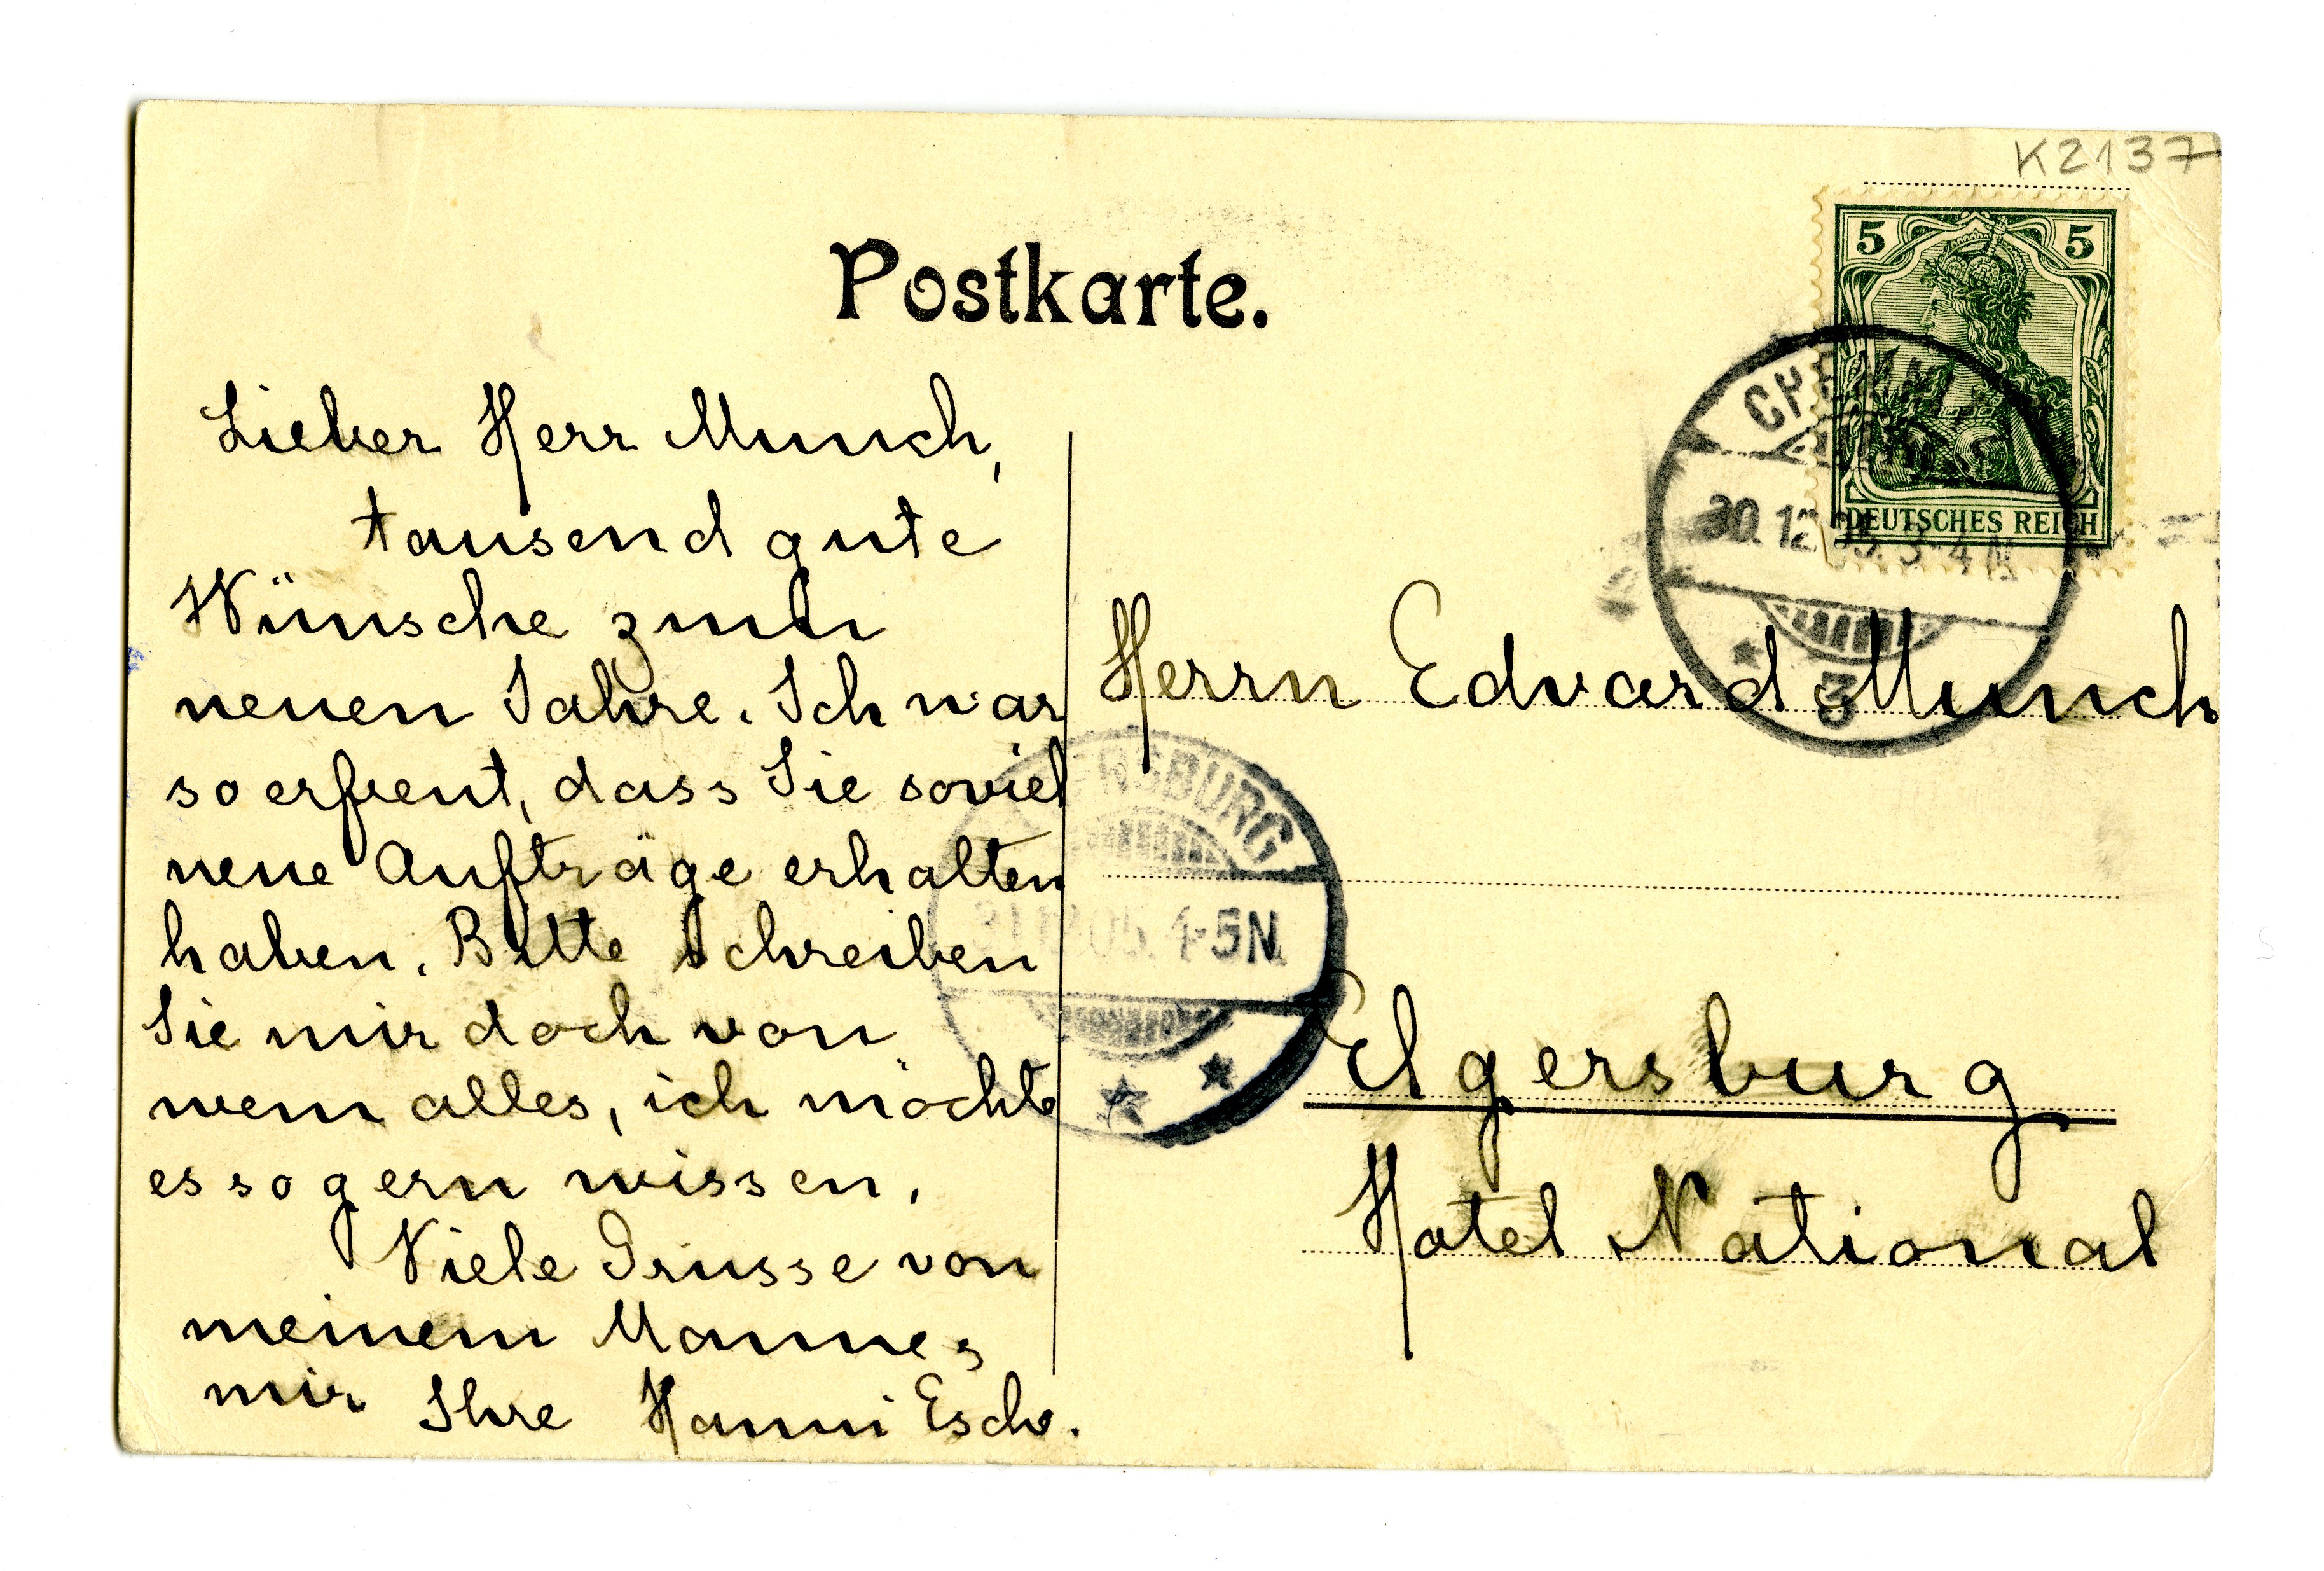 K2137
Postkarte.
5 5
DEUTSCHES REICH
CHEMNITZ
30.12.05. 3-4 N
3
Lieber Herr Munch,
tausend gute
Wünsche zum
neuen Jahre. Ich war
so erfreut, dass Sie soviel
neue Aufträge erhalten
haben. Bitte schreiben
Sie mir doch von
wem alles, ich möchte
es so gern wissen.
Viele Grüsse von
meinem Manne
mir Ihre Hanni Esch.
ERSBURG
31.12.05. 4-5N.
Herrn Edvard Munch
Elgersburg
Hotel National